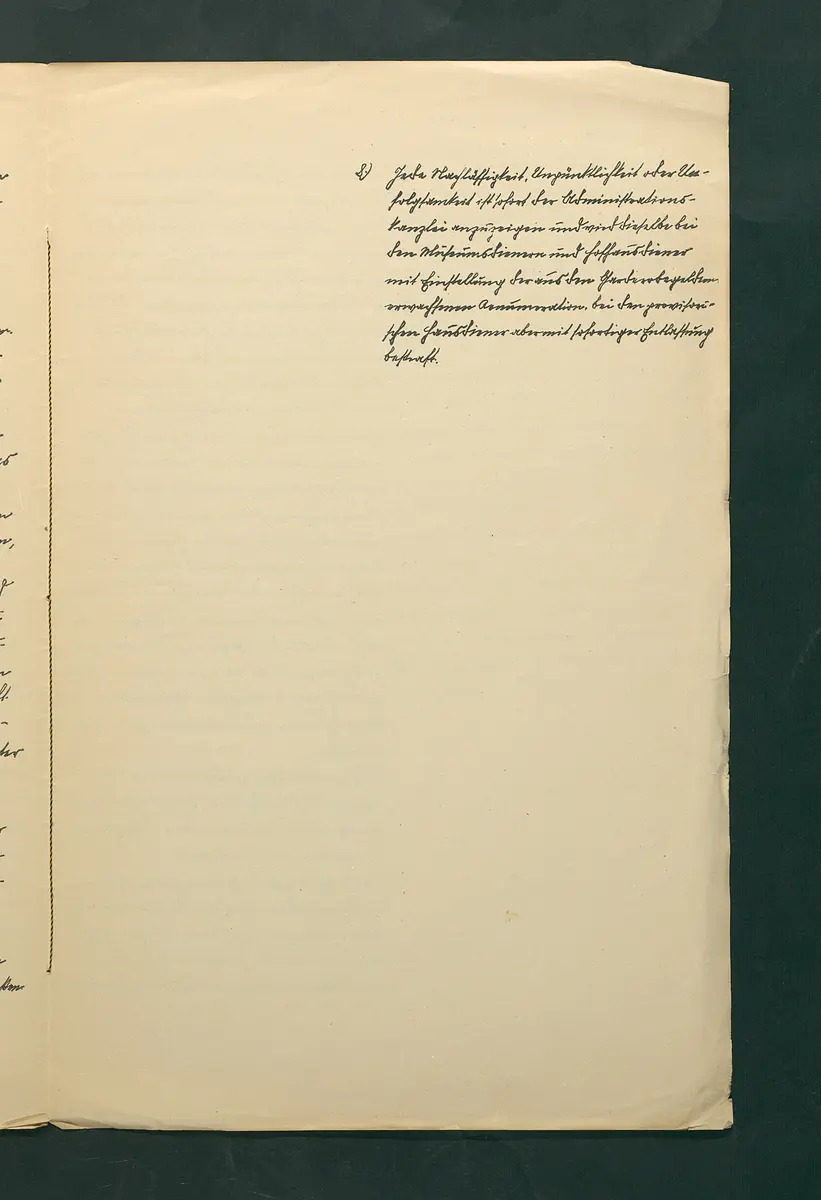 8.) Jede Nachlässigkeit, Unpünktlichkeit oder Un-
folgsamkeit ist sofort der Administrations-
kanzlei anzuzeigen und wird dieselbe bei
den Museumsdienern und Hofhausdiener
mit Einstellung der aus den Garderobegeldern
erwachsenen Renumeration, bei den provisori-
schen Hausdiener aber mit sofortiger Entlassung
bestraft.